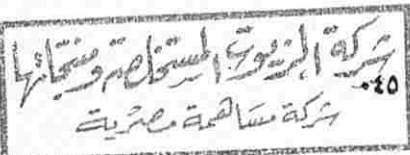 شركة الزيوت المستخلصة ومنتجاتها
٠٤٥
شركة مساهمة مصرية